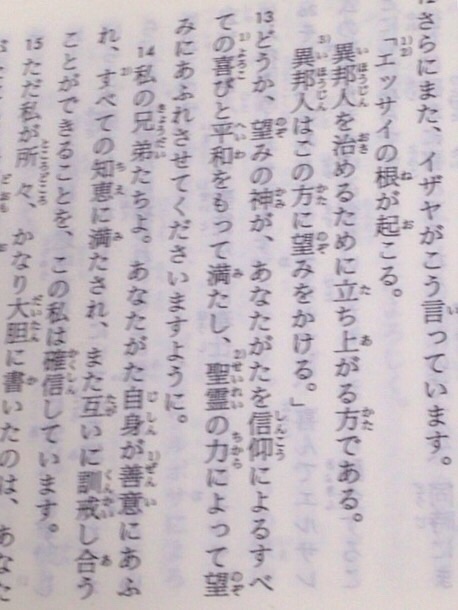 さらにまた、イザヤがこう言っています。
「エッサイの根が起こる。
異邦人を治めるために立ち上がる方である。
異邦人はこの方に望みをかける。」
13 どうか、望みの神が、あなたがたを信仰によるすべ
ての喜びと平和をもって満たし、聖霊の力によって望
みにあふれさせてくださいますように。
14 私の兄弟たちよ。あなたがた自身が善意にあふ
れ、すべての知恵に満たされ、また互いに訓戒し合う
ことができることを、この私は確信しています。
15 ただ私が所々、かなり大胆に書いたのは、あなた